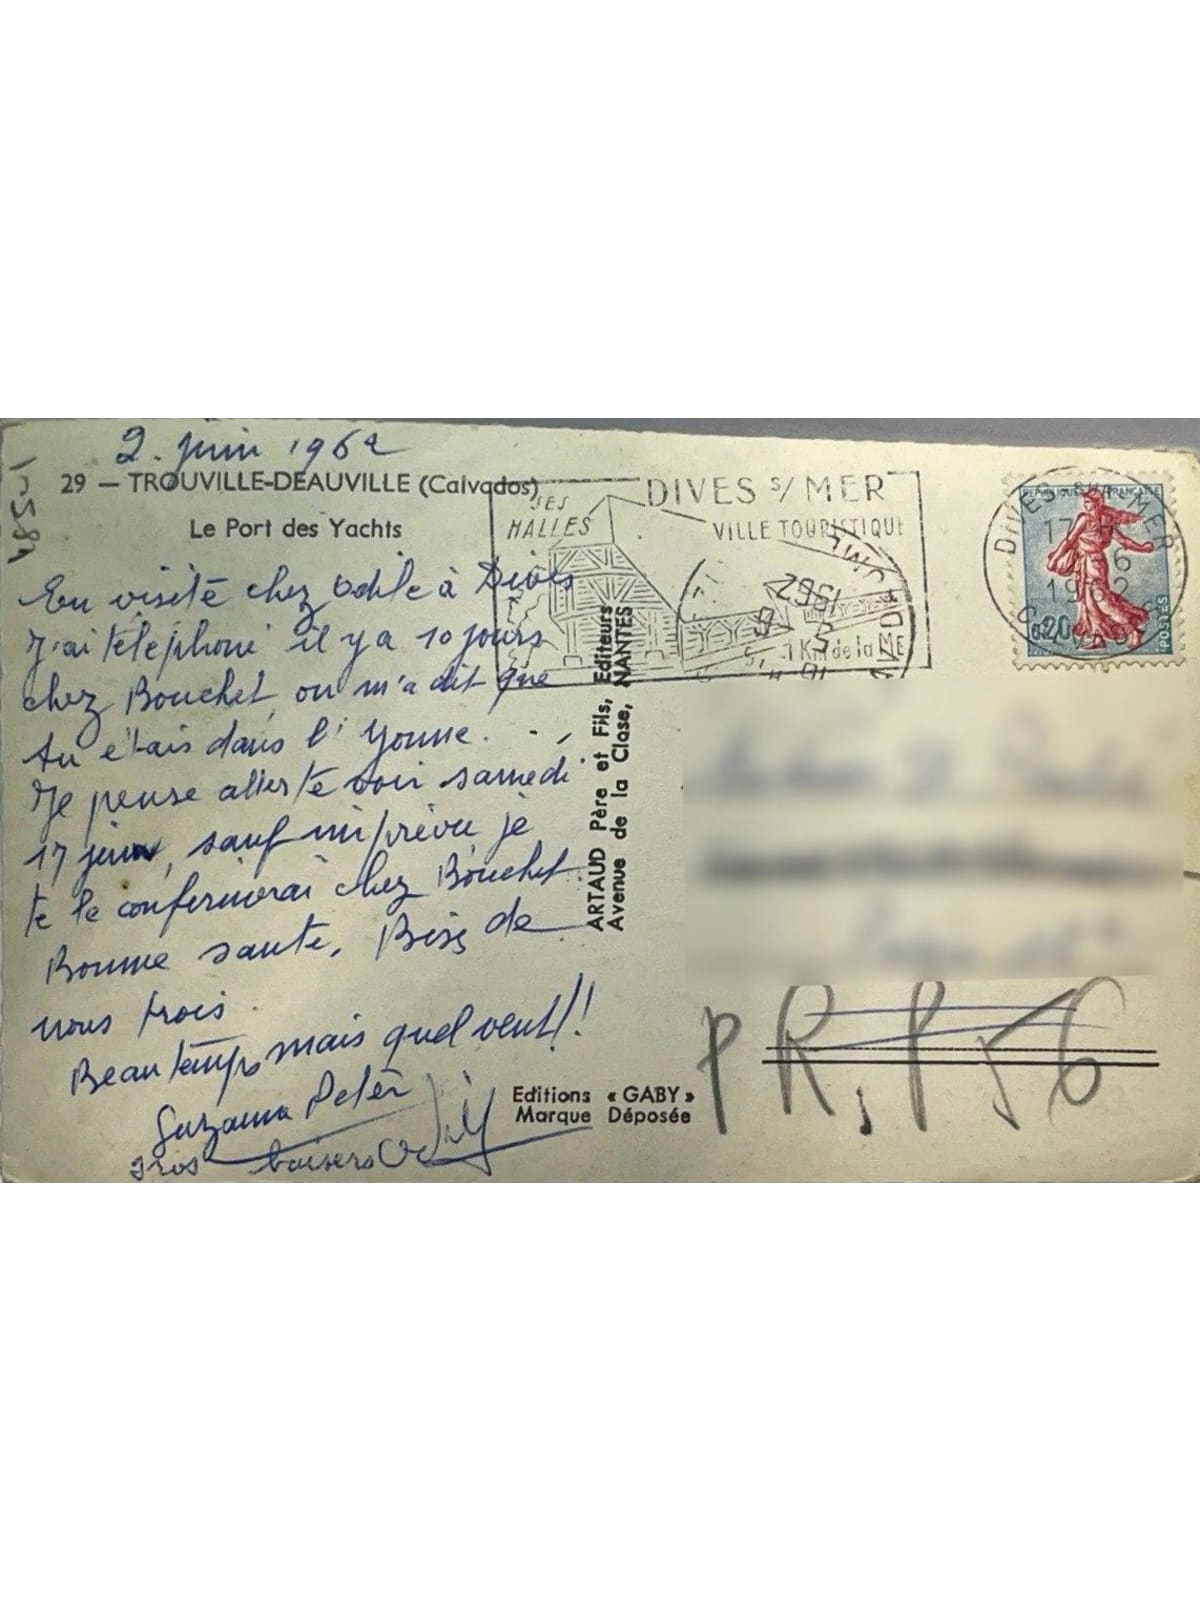 2. juin 1962
29 — TROUVILLE-DEAUVILLE (Calvados)
Le Port des Yachts
En visite chez Odile à Dives
J'ai téléphoné il y a 10 jours
chez Bouchet, on m'a dit que
tu étais dans l'Yonne.
Je pense aller te voir samedi
17 juin, sauf imprévu, je
te le confirmerai chez Bouchet.
Bonne santé, Bises de
nous trois.
Beau temps mais quel vent!!
Suzanne Peter
Gros baisers Odile
SES
HALLES
DIVES s/ MER
VILLE TOURISTIQUE
1 Km de la MER
1962
DIVES SUR MER
1962
REPUBLIQUE FRANÇAISE
0.20
POSTES
ARTAUD Père et Fils, Editeurs
Avenue de la Close, NANTES
Editions « GABY »
Marque Déposée
PR. P 56